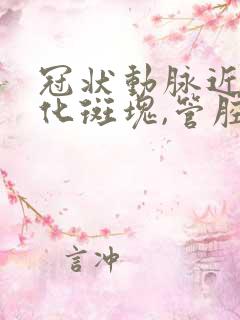 冠状動脉近
化斑塊,管腔
言冲